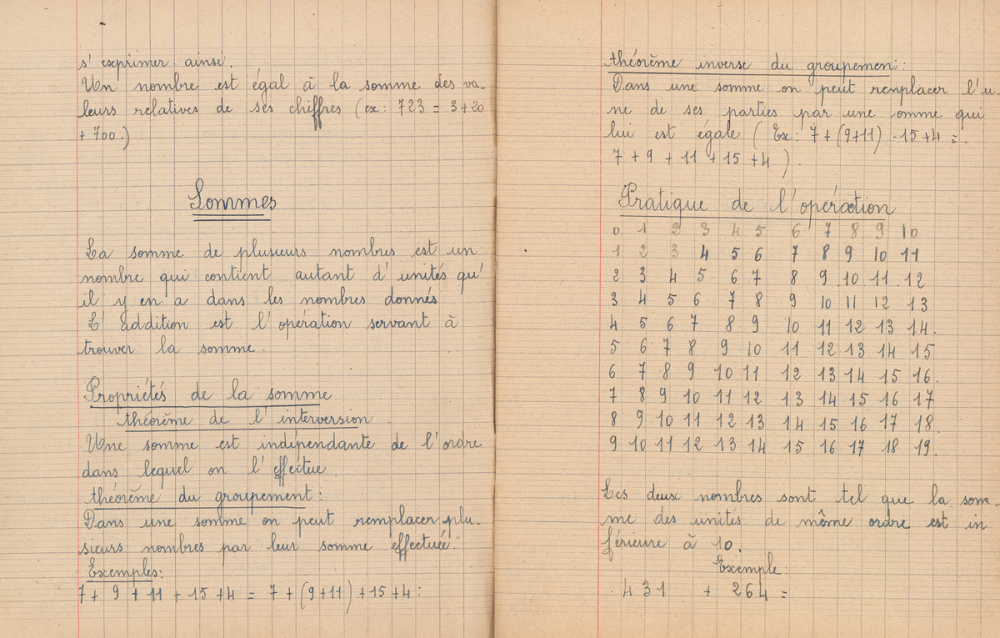 s'exprimer ainsi.
Un nombre est égal à la somme des va-
leurs relatives de ses chiffres (ex: 723 = 3+20
+ 700.)
Sommes
La somme de plusieurs nombres est un
nombre qui contient autant d'unités qu'
il y en a dans les nombres donnés
L'addition est l'opération servant à
trouver la somme.
Propriétés de la somme
théorème de l'interversion
Une somme est indépendante de l'ordre
dans lequel on l'effectue.
théorème du groupement:
Dans une somme on peut remplacer plu-
sieurs nombres par leur somme effectuée.
Exemples:
7 + 9 + 11 + 15 + 4 = 7 + (9+11) + 15 + 4:
théorème inverse du groupement:
Dans une somme on peut remplacer l'u-
ne de ses parties par une omme qui
lui est égale (Ex: 7 + (9+11) -15 +4 =.
7 + 9 + 11 + 15 + 4).
Pratique de l'opération
0 1 2 3 4 5 6 7 8 9 10
1 2 3 4 5 6 7 8 9 10 11
2 3 4 5 6 7 8 9 10 11 12
3 4 5 6 7 8 9 10 11 12 13
4 5 6 7 8 9 10 11 12 13 14.
5 6 7 8 9 10 11 12 13 14 15
6 7 8 9 10 11 12 13 14 15 16.
7 8 9 10 11 12 13 14 15 16 17
8 9 10 11 12 13 14 15 16 17 18.
9 10 11 12 13 14 15 16 17 18 19.
Les deux nombres sont tel que la som-
me des unités de même ordre est in
férieure à 10.
Exemple:
431 + 264 =